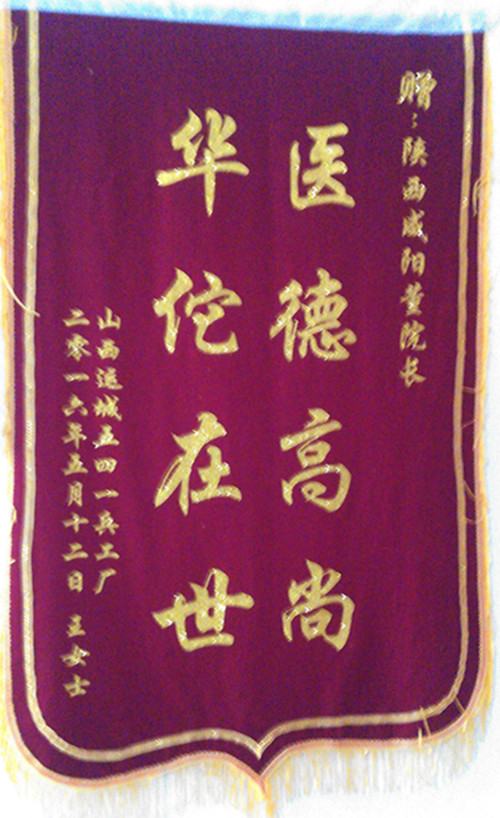 赠:陕西咸阳董院长
医德高尚
华佗在世
山西运城五四一兵工厂
二零一六年五月十二日 王女士